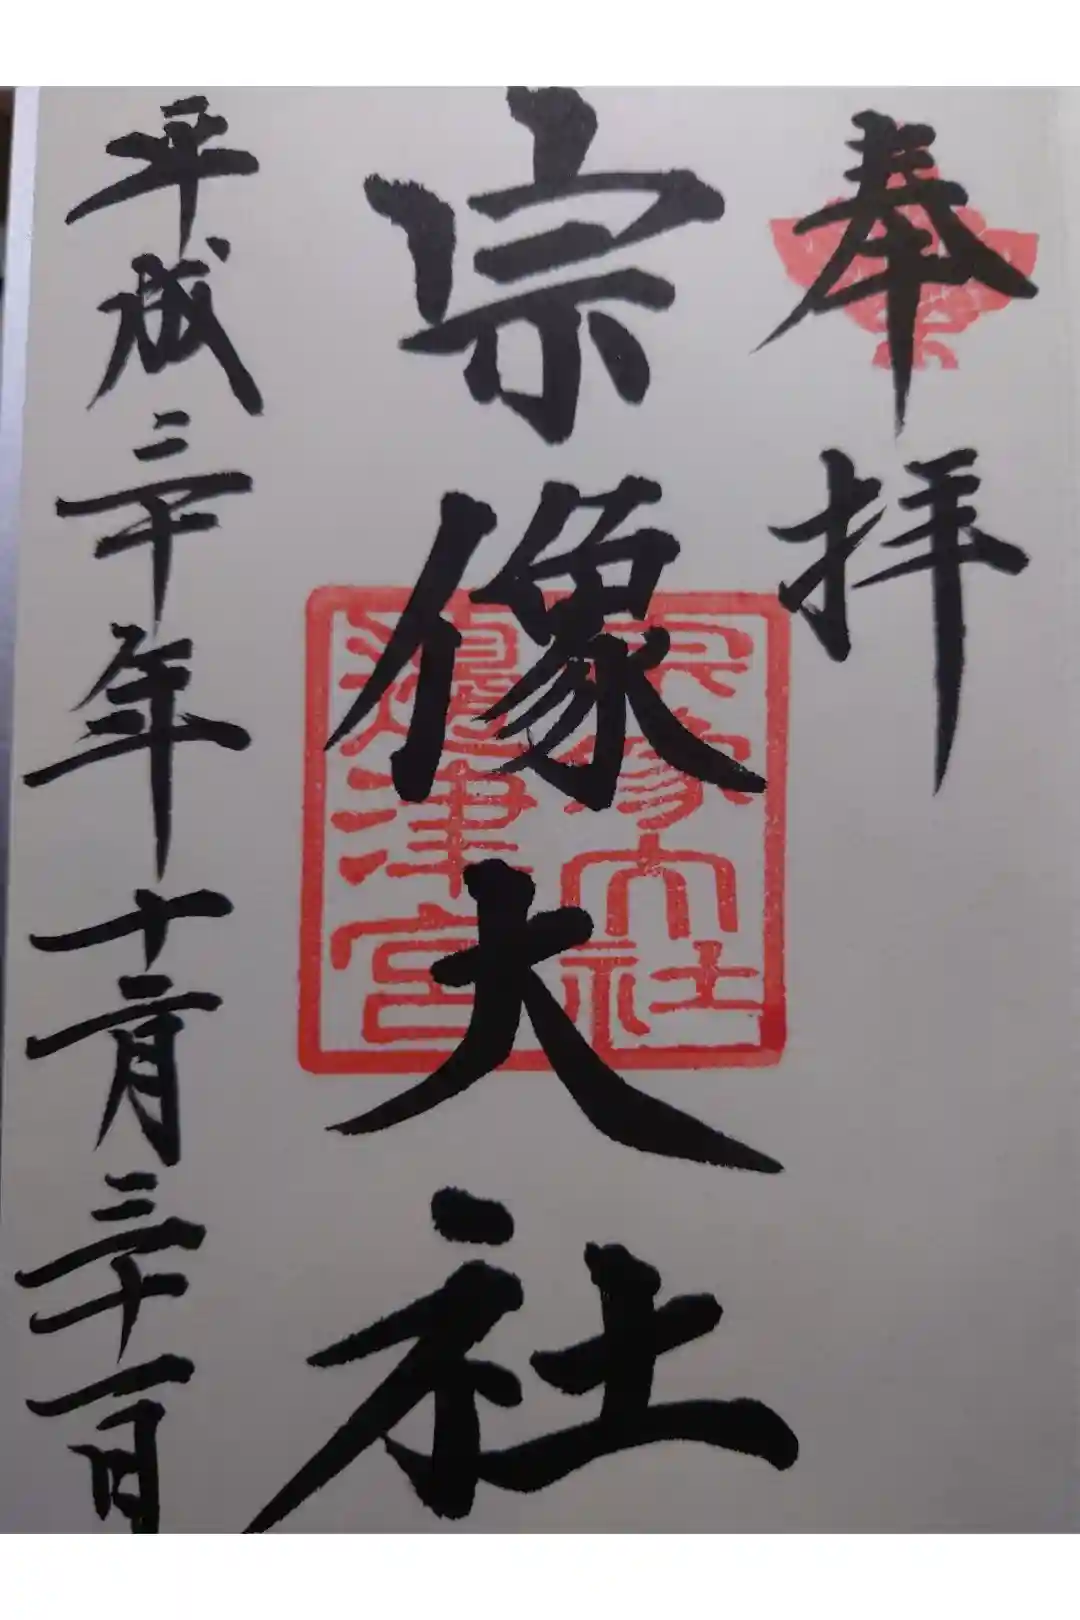 奉拝
宗像大社
宗像大社
邊津宮
平成三十年十二月三十一日